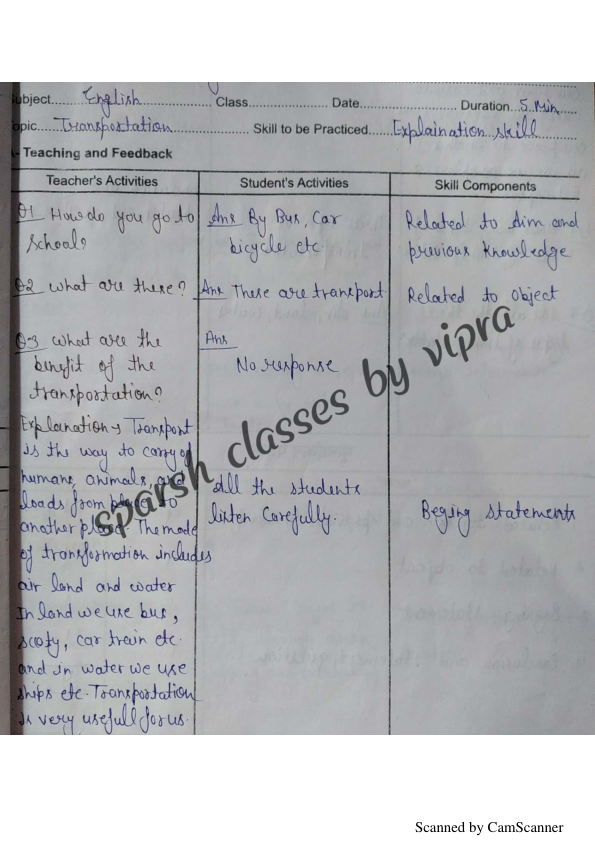 ubject....English.... Class.... Date.... Duration..5 Min...
opic....Transportation.... Skill to be Practiced....Explaination skill
- Teaching and Feedback
Teacher's Activities Student's Activities Skill Components
Q1 How do you go to school?
Ans By Bus, Car bicycle etc
Related to Aim and previous knowledge
Q2 what are these?
Ans These are transport
Related to object
Q3 what are the
benefit of the
transportation?
Ans
No response
Explanation → Transport
is the way to carry of
humans, animals, and
loads from place to
another place. The mode
of transformation includes
air land and water
In land we use bus,
scoty, car train etc.
and in water we use
ships etc. Transportation
is very usefull for us.
All the students
listen Carefully.
Beging statements
sparsh classes by vipra
Scanned by CamScanner